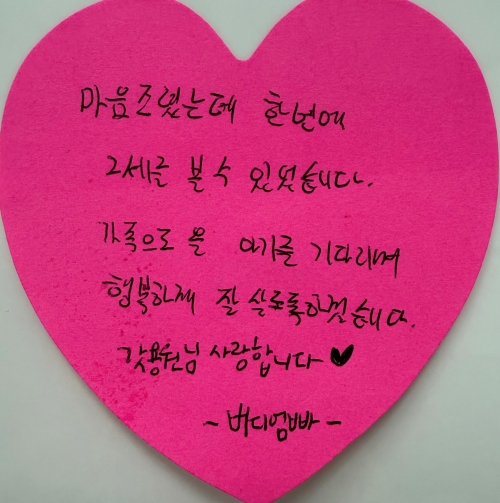 마음조렸는데 한번에
2세를 볼 수 있었습니다.
가족으로 올 아기를 기다리며
행복하게 잘 살도록하겠습니다.
갓용원님 사랑합니다♥
~버디엄빠~